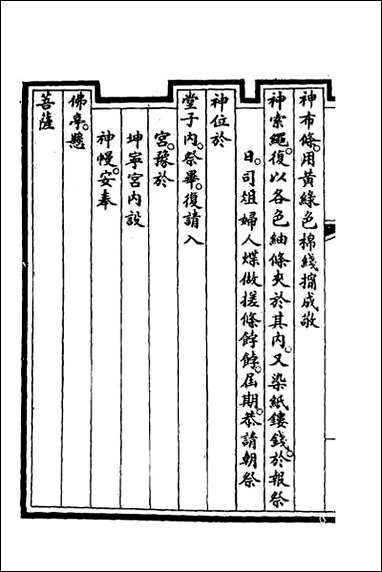 神布條。用黃綠色棉綫擰成敬
神索繩。復以各色紬條夾於其內。又染紙鏤錢。於報祭
日。司俎婦人煠做搓條餑餑。屆期。恭請朝祭
神位於
堂子內。祭畢。復請入
宮。豫於
坤寧宮內設
神幔。安奉
佛亭。懸
菩薩